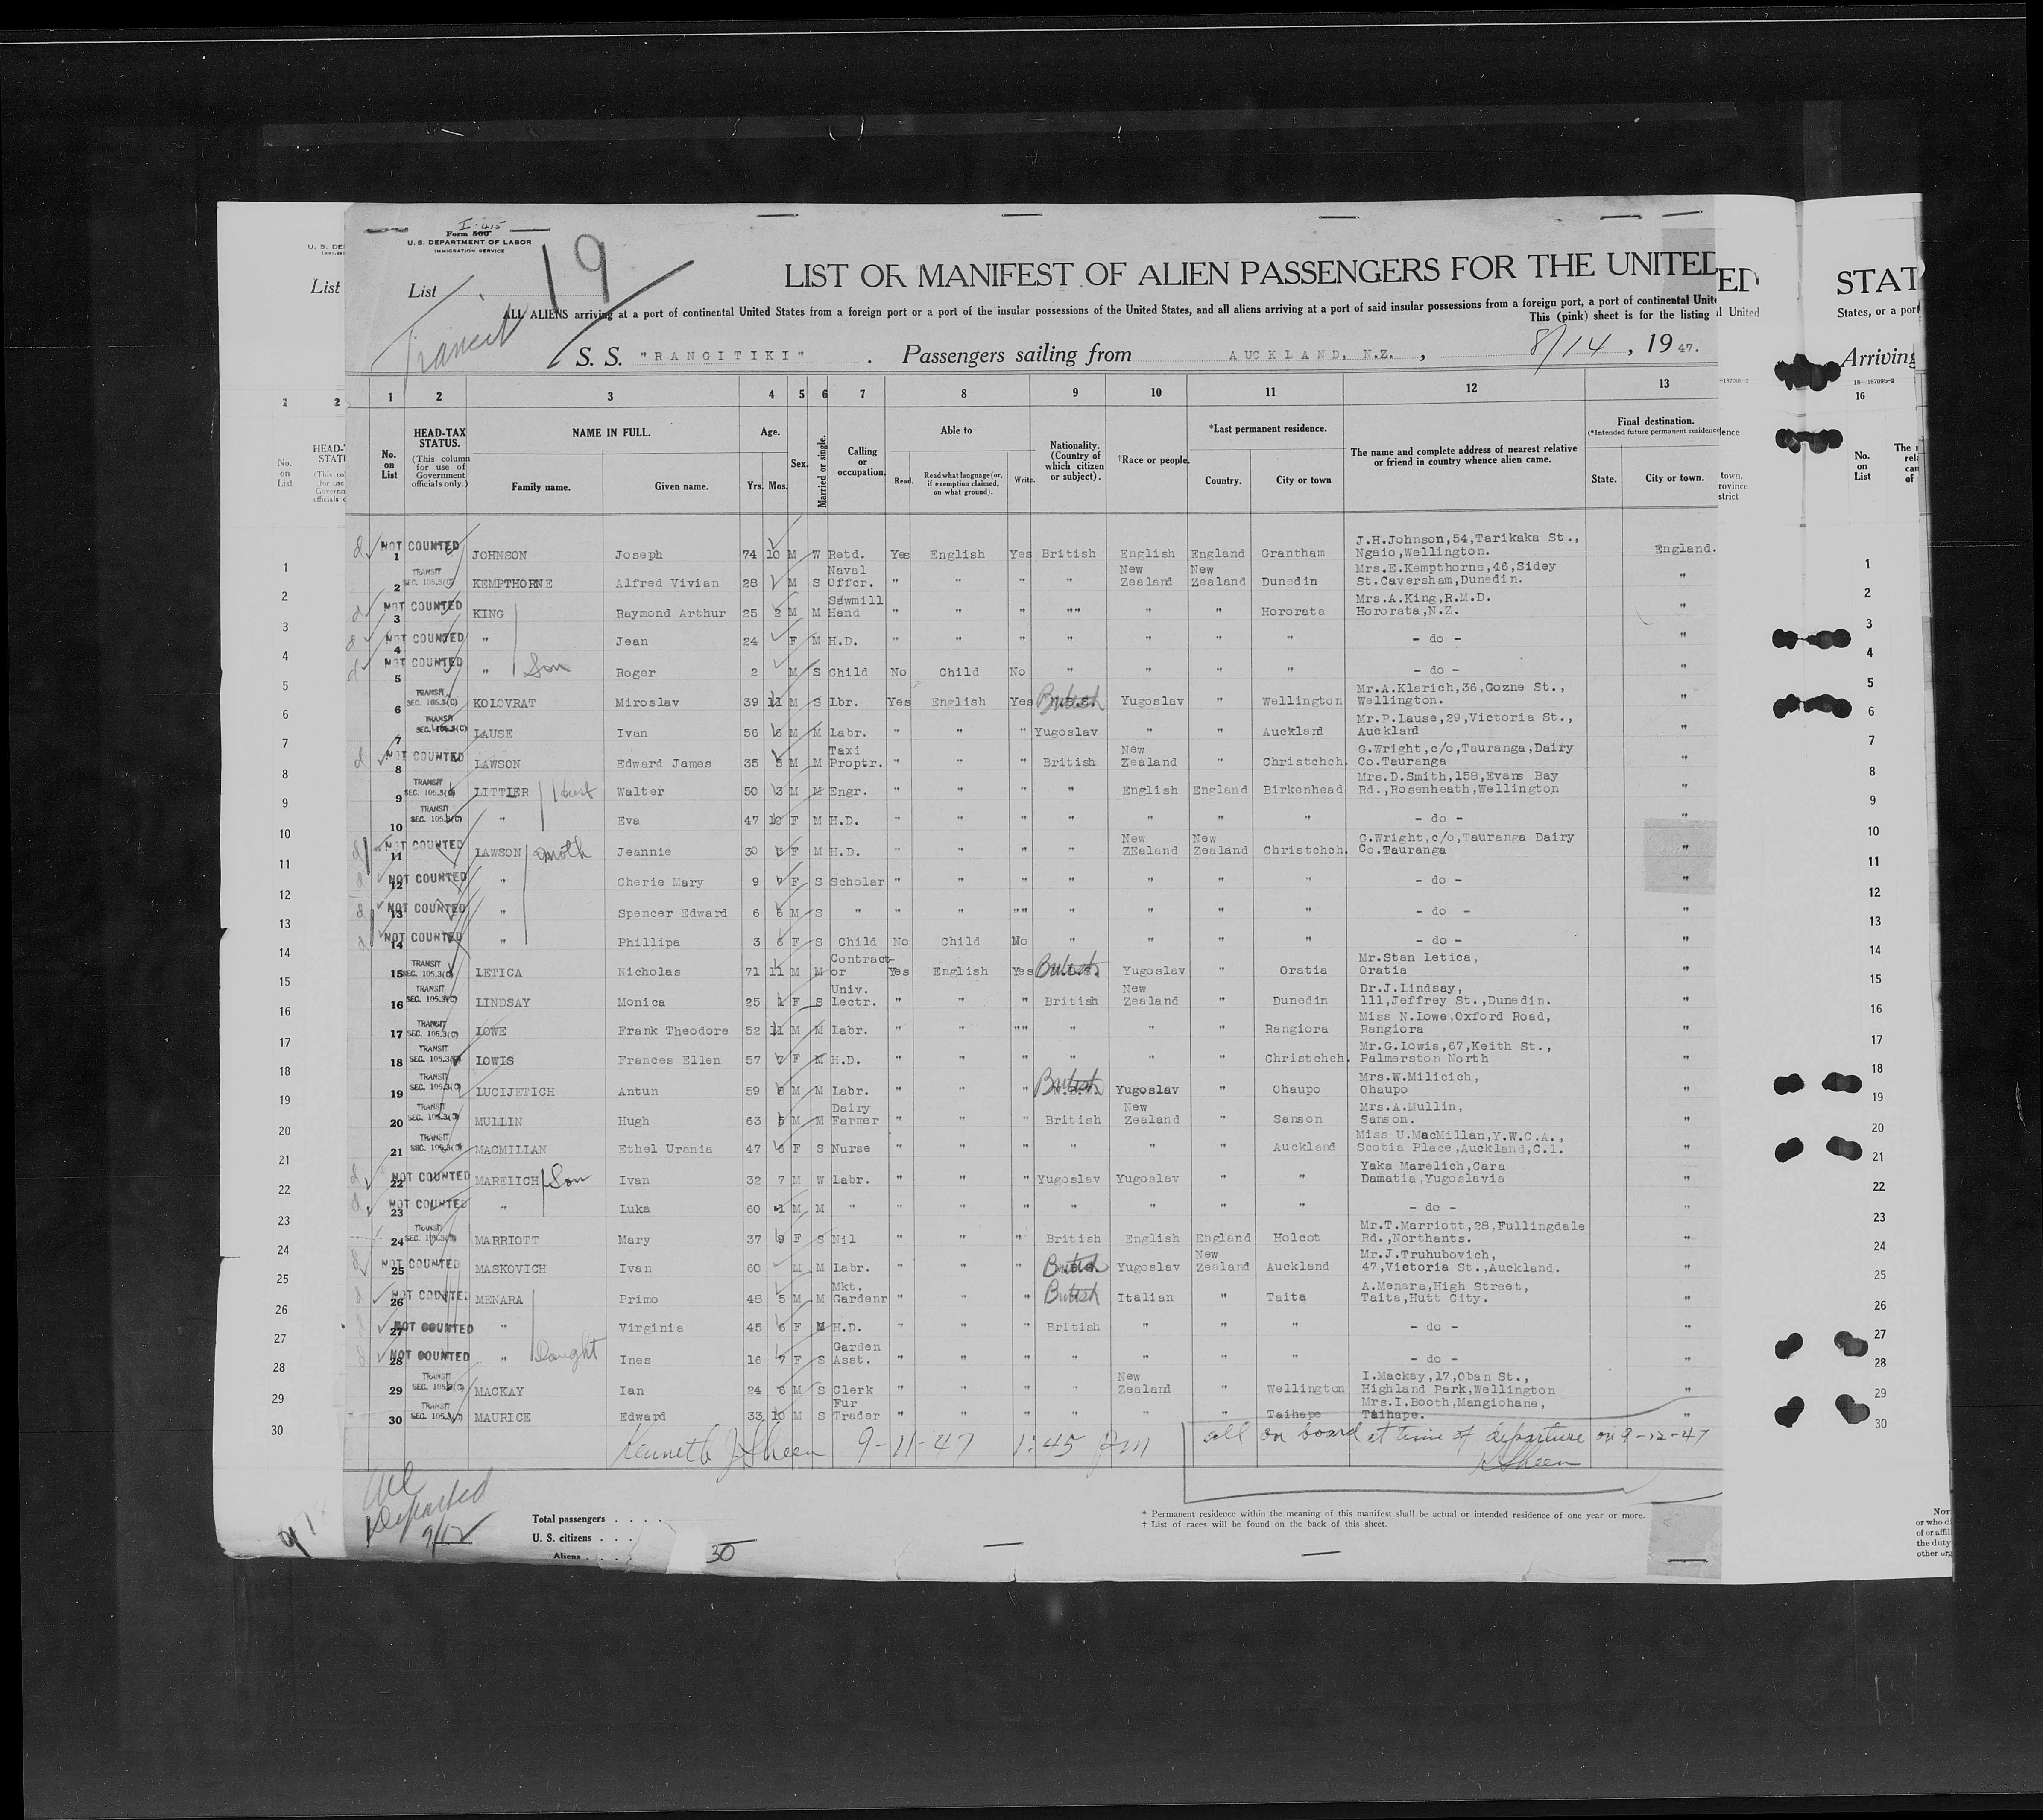 I-415
Form 500
U. S. DEPARTMENT OF LABOR
IMMIGRATION SERVICE
List 19
Transit
LIST OR MANIFEST OF ALIEN PASSENGERS FOR THE UNITED
ALL ALIENS arriving at a port of continental United States from a foreign port or a port of the insular possessions of the United States, and all aliens arriving at a port of said insular possessions from a foreign port, a port of continental Unite
This (pink) sheet is for the listing
S. S. "RANGITIKI" . Passengers sailing from AUCKLAND, N.Z. , 8/14 , 19 47.
1 2 3 4 5 6 7 8 9 10 11 12 13
No. on List
HEAD-TAX STATUS. (This column for use of Government officials only.)
NAME IN FULL. Family name. Given name.
Age. Yrs. Mos.
Sex.
Married or single.
Calling or occupation.
Able to— Read. Read what language (or, if exemption claimed, on what ground). Write.
Nationality. (Country of which citizen or subject).
†Race or people.
*Last permanent residence. Country. City or town
The name and complete address of nearest relative or friend in country whence alien came.
Final destination. (*Intended future permanent residence State. City or town.
NOT COUNTED 1 JOHNSON Joseph 74 10 M W Retd. Yes English Yes British English England Grantham J.H.Johnson,54,Tarikaka St., Ngaio,Wellington. England.
TRANSIT SEC. 105.3(C) 2 KEMPTHORNE Alfred Vivian 28 M S Naval Offcr. " " " " New Zealand New Zealand Dunedin Mrs.E.Kempthorne,46,Sidey St.Caversham,Dunedin. "
NOT COUNTED 3 KING Raymond Arthur 25 2 M M Sawmill Hand " " " "" " " Hororata Mrs.A.King,R.M.D. Hororata,N.Z. "
NOT COUNTED 4 " Jean 24 F M H.D. " " " " " " " - do - "
NOT COUNTED 5 " Son Roger 2 M S Child No Child No " " " " - do - "
TRANSIT SEC. 105.3(C) 6 KOLOVRAT Miroslav 39 11 M S Lbr. Yes English Yes British Yugoslav " Wellington Mr.A.Klarich,36,Gozne St., Wellington. "
TRANSIT SEC. 105.3(C) 7 LAUSE Ivan 56 6 M M Labr. " " " Yugoslav " " Auckland Mr.P.Lause,29,Victoria St., Auckland "
NOT COUNTED 8 LAWSON Edward James 35 5 M M Taxi Proptr. " " " British New Zealand " Christchch. G.Wright,c/o,Tauranga,Dairy Co.Tauranga "
TRANSIT SEC. 105.3(C) 9 LITTLER Walter 50 3 M M Engr. " " " " English England Birkenhead Mrs.D.Smith,158,Evans Bay Rd.,Rosenheath,Wellington "
TRANSIT SEC. 105.3(C) 10 " Eva 47 10 F M H.D. " " " " " " " - do - "
NOT COUNTED 11 LAWSON Jeannie 30 F M H.D. " " " " New ZEaland New Zealand Christchch. G.Wright,c/o,Tauranga Dairy Co.Tauranga "
NOT COUNTED 12 " Cherie Mary 9 7 F S Scholar " " " " " " " - do - "
NOT COUNTED 13 " Spencer Edward 6 6 M S " " " "" " " " " - do - "
NOT COUNTED 14 " Phillipa 3 6 F S Child No Child No " " " " - do - "
TRANSIT SEC. 105.3(C) 15 LETICA Nicholas 71 11 M M Contract-or Yes English Yes British Yugoslav " Oratia Mr.Stan Letica, Oratia "
TRANSIT SEC. 105.3(C) 16 LINDSAY Monica 25 1 F S Univ. Lectr. " " " British New Zealand " Dunedin Dr.J.Lindsay, 111,Jeffrey St.,Dunedin. "
TRANSIT SEC. 105.3(C) 17 LOWE Frank Theodore 52 11 M M Labr. " " "" " " " Rangiora Miss N.Lowe,Oxford Road, Rangiora "
TRANSIT SEC. 105.3(C) 18 LOWIS Frances Ellen 57 7 F M H.D. " " " " " " Christchch. Mr.G.Lowis,67,Keith St., Palmerston North "
TRANSIT SEC. 105.3(C) 19 LUCIJETICH Antun 59 8 M M Labr. " " " British Yugoslav " Ohaupo Mrs.W.Milicich, Ohaupo "
TRANSIT SEC. 105.3(C) 20 MULLIN Hugh 63 5 M M Dairy Farmer " " " British New Zealand " Sanson Mrs.A.Mullin, Sanson. "
TRANSIT SEC. 105.3(C) 21 MACMILLAN Ethel Urania 47 6 F S Nurse " " " " " " Auckland Miss U.MacMillan,Y.W.C.A., Scotia Place,Auckland,C.1. "
NOT COUNTED 22 MARELICH Son Ivan 32 7 M W Labr. " " " Yugoslav Yugoslav " " Yaka Marelich,Cara Damatia,Yugoslavia "
NOT COUNTED 23 " Luka 60 1 M M " " " " " " " " - do - "
TRANSIT SEC. 105.3(C) 24 MARRIOTT Mary 37 9 F S Nil " " " British English England Holcot Mr.T.Marriott,28,Fullingdale Rd.,Northants. "
NOT COUNTED 25 MASKOVICH Ivan 60 M M Labr. " " " British Yugoslav New Zealand Auckland Mr.J.Truhubovich, 47,Victoria St.,Auckland. "
NOT COUNTED 26 MENARA Primo 48 5 M M Mkt. Gardenr " " " British Italian " Taita A.Menara,High Street, Taita,Hutt City. "
NOT COUNTED 27 " Virginia 45 6 F M H.D. " " " British " " " - do - "
NOT COUNTED 28 " Daught Ines 16 7 F S Garden Asst. " " " " " " " - do - "
TRANSIT SEC. 105.3(C) 29 MACKAY Ian 24 6 M S Clerk " " " " New Zealand " Wellington I.Mackay,17,Oban St., Highland Park,Wellington "
TRANSIT SEC. 105.3(C) 30 MAURICE Edward 33 10 M S Fur Trader " " " " " " Taihape Mrs.I.Booth,Mangiohane, Taihape. "
Kenneth J Sheen 9-11-47 1:45 PM
all on board at time of departure on 9-12-47
K Sheen
All Departed 9/12
Total passengers . . . .
U. S. citizens . . .
Aliens . . . . 30
* Permanent residence within the meaning of this manifest shall be actual or intended residence of one year or more.
† List of races will be found on the back of this sheet.
STAT
States, or a port
Arriving
16
No. on List
1
2
3
4
5
6
7
8
9
10
11
12
13
14
15
16
17
18
19
20
21
22
23
24
25
26
27
28
29
30